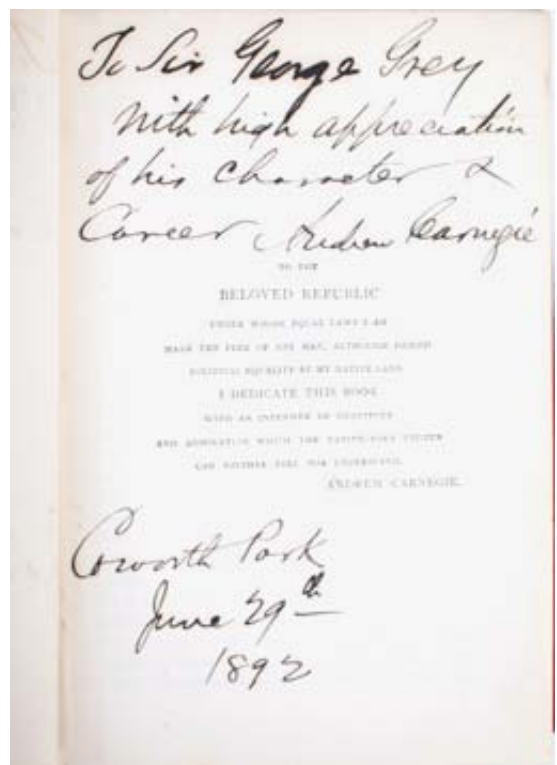 To Sir George Grey
With high appreciation
of his Character &
Career Andrew Carnegie
TO THE
BELOVED REPUBLIC
UNDER WHOSE EQUAL LAWS I AM
MADE THE PEER OF ANY MAN, ALTHOUGH DENIED
POLITICAL EQUALITY BY MY NATIVE LAND
I DEDICATE THIS BOOK
WITH AN INTENSITY OF GRATITUDE
AND ADMIRATION WHICH THE NATIVE-BORN CITIZEN
CAN NEITHER FEEL NOR UNDERSTAND.
ANDREW CARNEGIE.
Coworth Park
June 29th
1892